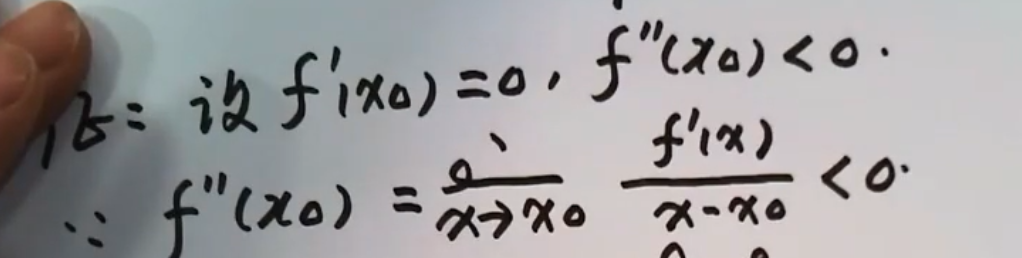 证：设 f'(x₀)=0, f''(x₀)<0.
∵ f''(x₀) = lim x→x₀ f'(x)/(x-x₀) <0.